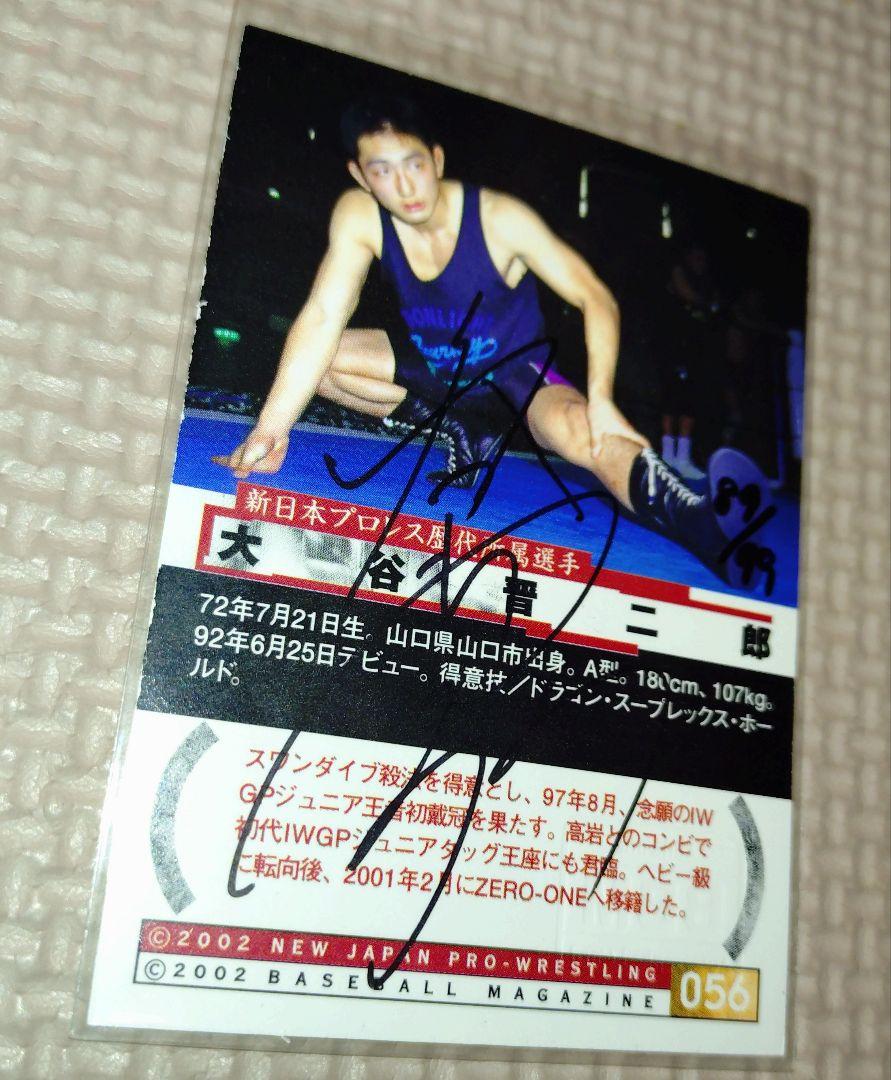 89/99
新日本プロレス歴代所属選手
大谷晋二郎
72年7月21日生。山口県山口市出身。A型。180cm、107kg。
92年6月25日デビュー。得意技／ドラゴン・スープレックス・ホー
ルド。
スワンダイブ殺法を得意とし、97年8月、念願のIW
GPジュニア王者初戴冠を果たす。高岩とのコンビで
初代IWGPジュニアタッグ王座にも君臨。ヘビー級
に転向後、2001年2月にZERO-ONEへ移籍した。
©2002 NEW JAPAN PRO-WRESTLING
©2002 BASEBALL MAGAZINE
056